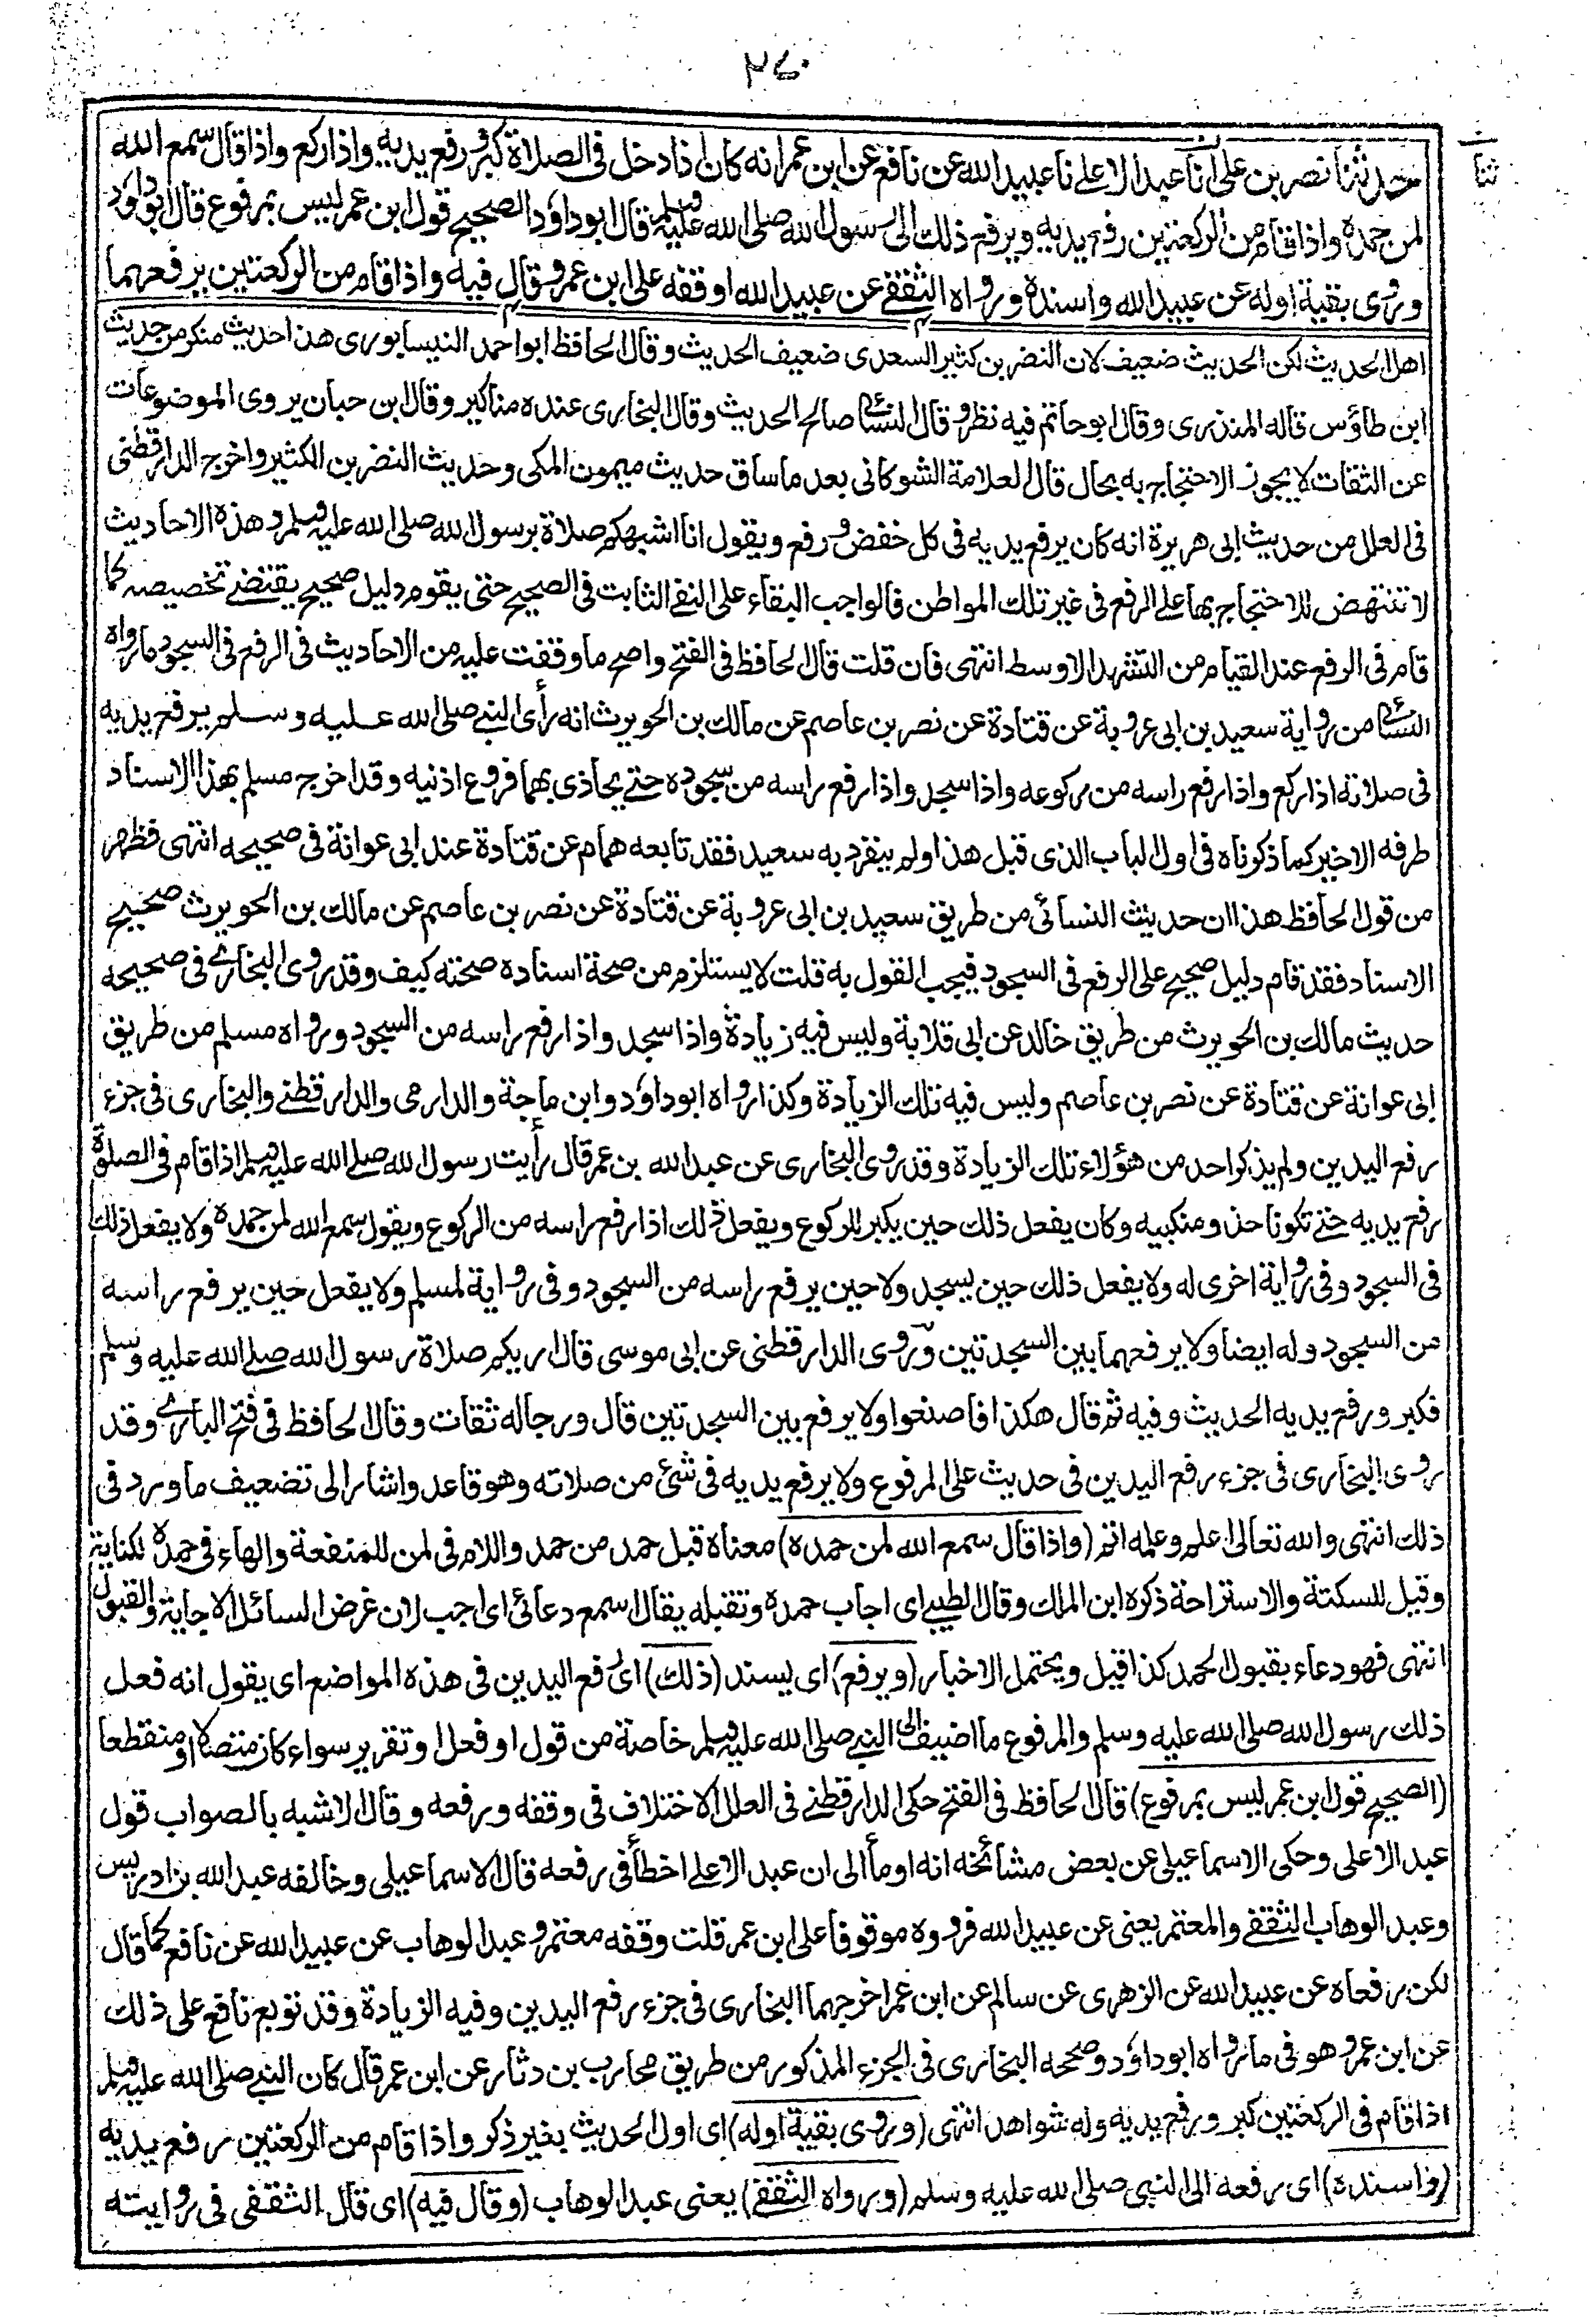 ٢٧٠
ثنا
حدثنا نصر بن على انا عبد الاعلے نا عبيد الله عن نافع عن ابن عمر انه كان اذا دخل فى الصلاة كبر ورفع يديه واذا ركع واذا قال سمع الله
لمن حمده واذا قام من الركعتين رفع يديه ويرفع ذلك الى رسول الله صلى الله عليه وسلم قال ابو داؤد الصحيح قول ابن عمر ليس بمرفوع قال ابو داؤد
وروى بقية اوله عن عبيد الله واسنده ورواه الثقفے عن عبيد الله اوقفه على ابن عمر وقال فيه واذا قام من الركعتين يرفعهما
اهل الحديث لكن الحديث ضعيف لان النضر بن كثير السعدى ضعيف الحديث وقال الحافظ ابو احمد النيسابورى هذا حديث منكر من حديث
ابن طاؤس قاله المنذرى وقال ابو حاتم فيه نظر وقال النسائى صالح الحديث وقال البخارى عنده مناكير وقال ابن حبان يروى الموضوعات
عن الثقات لا يجوز الاحتجاج به بحال قال العلامة الشوكانى بعد ما ساق حديث ميمون المكى وحديث النضر بن الكثير واخرج الدارقطنى
فى العلل من حديث ابى هريرة انه كان يرفع يديه فى كل خفض ورفع ويقول انا اشبهكم صلاة برسول الله صلى الله عليه وسلم وهذه الاحاديث
لا تنتهض للاحتجاج بها على الرفع فى غير تلك المواطن فالواجب البقاء على النفے الثابت فى الصحيح حتى يقوم دليل صحيح يقتضے تخصيصه كما
قام فى الرفع عند القيام من التشهد الاوسط انتهى فان قلت قال الحافظ فى الفتح واصح ما وقفت عليه من الاحاديث فى الرفع فى السجود ما رواه
النسائى من رواية سعيد بن ابى عروبة عن قتادة عن نصر بن عاصم عن مالك بن الحويرث انه رأى النبے صلى الله عليه وسلم يرفع يديه
فى صلاته اذا ركع واذا رفع راسه من ركوعه واذا سجد واذا رفع راسه من سجوده حتے يحاذى بهما فروع اذنيه وقد اخرج مسلم بهذا الاسناد
طرفه الاخير كما ذكرناه فى اول الباب الذى قبل هذا ولم ينفرد به سعيد فقد تابعه همام عن قتادة عند ابى عوانة فى صحيحه انتهى فظهر
من قول الحافظ هذا ان حديث النسائى من طريق سعيد بن ابى عروبة عن قتادة عن نصر بن عاصم عن مالك بن الحويرث صحيح
الاسناد فقد قام دليل صحيح على الرفع فى السجود فيجب القول به قلت لا يستلزم من صحة اسناده صحته كيف وقد روى البخارے فى صحيحه
حديث مالك بن الحويرث من طريق خالد عن ابى قلابة وليس فيه زيادة واذا سجد واذا رفع راسه من السجود ورواه مسلم من طريق
ابى عوانة عن قتادة عن نصر بن عاصم وليس فيه تلك الزيادة وكذا رواه ابو داؤد وابن ماجة والدارمى والدارقطنے والبخارى فى جزء
رفع اليدين ولم يذكر احد من هؤلاء تلك الزيادة وقد روى البخارى عن عبد الله بن عمر قال رأيت رسول الله صلے الله عليه وسلم اذا قام فى الصلوة
رفع يديه حتے تكونا حذو منكبيه وكان يفعل ذلك حين يكبر للركوع ويفعل ذلك اذا رفع راسه من الركوع ويقول سمع الله لمن حمده ولا يفعل ذلك
فى السجود وفى رواية اخرى له ولا يفعل ذلك حين يسجد ولا حين يرفع راسه من السجود وفى رواية لمسلم ولا يفعل حين يرفع راسه
من السجود وله ايضا ولا يرفعهما بين السجدتين وروى الدارقطنى عن ابى موسى قال اريكم صلاة رسول الله صلے الله عليه وسلم
فكبر ورفع يديه الحديث وفيه ثم قال هكذا فاصنعوا ولا يرفع بين السجدتين قال ورجاله ثقات وقال الحافظ فى فتح البارے وقد
روى البخارى فى جزء رفع اليدين فى حديث على المرفوع ولا يرفع يديه فى شئ من صلاته وهو قاعد واشار الى تضعيف ما ورد فى
ذلك انتهى والله تعالى اعلم وعلمه اتم (واذا قال سمع الله لمن حمده) معناه قبل حمد من حمد واللام فى لمن للمنفعة والهاء فى حمده للكناية
وقيل للسكتة والاستراحة ذكره ابن الملك وقال الطيبے اى اجاب حمده وتقبله يقال اسمع دعائى اى اجب لان غرض السائل الاجابة والقبول
انتهى فهو دعاء بقبول الحمد كذا قيل ويحتمل الاخبار (ويرفع) اى يسند (ذلك) اى رفع اليدين فى هذه المواضع اى يقول انه فعل
ذلك رسول الله صلى الله عليه وسلم والمرفوع ما اضيف الى النبے صلى الله عليه وسلم خاصة من قول او فعل او تقرير سواء كان متصلا او منقطعا
(الصحيح قول ابن عمر ليس بمرفوع) قال الحافظ فى الفتح حكى الدارقطنے فى العلل الاختلاف فى وقفه ورفعه وقال الاشبه بالصواب قول
عبد الاعلى وحكى الاسماعيلى عن بعض مشائخه انه اومأ الى ان عبد الاعلے اخطأ فى رفعه قال الاسماعيلى وخالفه عبد الله بن ادريس
وعبد الوهاب الثقفے والمعتمر يعنى عن عبيد الله فرووه موقوفا على ابن عمر قلت وقفه معتمر وعبد الوهاب عن عبيد الله عن نافع كما قال
لكن رفعاه عن عبيد الله عن الزهرى عن سالم عن ابن عمر اخرجهما البخارى فى جزء رفع اليدين وفيه الزيادة وقد توبع نافع على ذلك
عن ابن عمر وهو فى ما رواه ابو داؤد وصححه البخارى فى الجزء المذكور من طريق محارب بن دثار عن ابن عمر قال كان النبے صلى الله عليه وسلم
اذا قام فى الركعتين كبر ورفع يديه وله شواهد انتهى (وروى بقية اوله) اى اول الحديث بغير ذكر واذا قام من الركعتين رفع يديه
(واسنده) اى رفعه الى النبى صلى الله عليه وسلم (ورواه الثقفے) يعنى عبد الوهاب (وقال فيه) اى قال الثقفى فى روايته